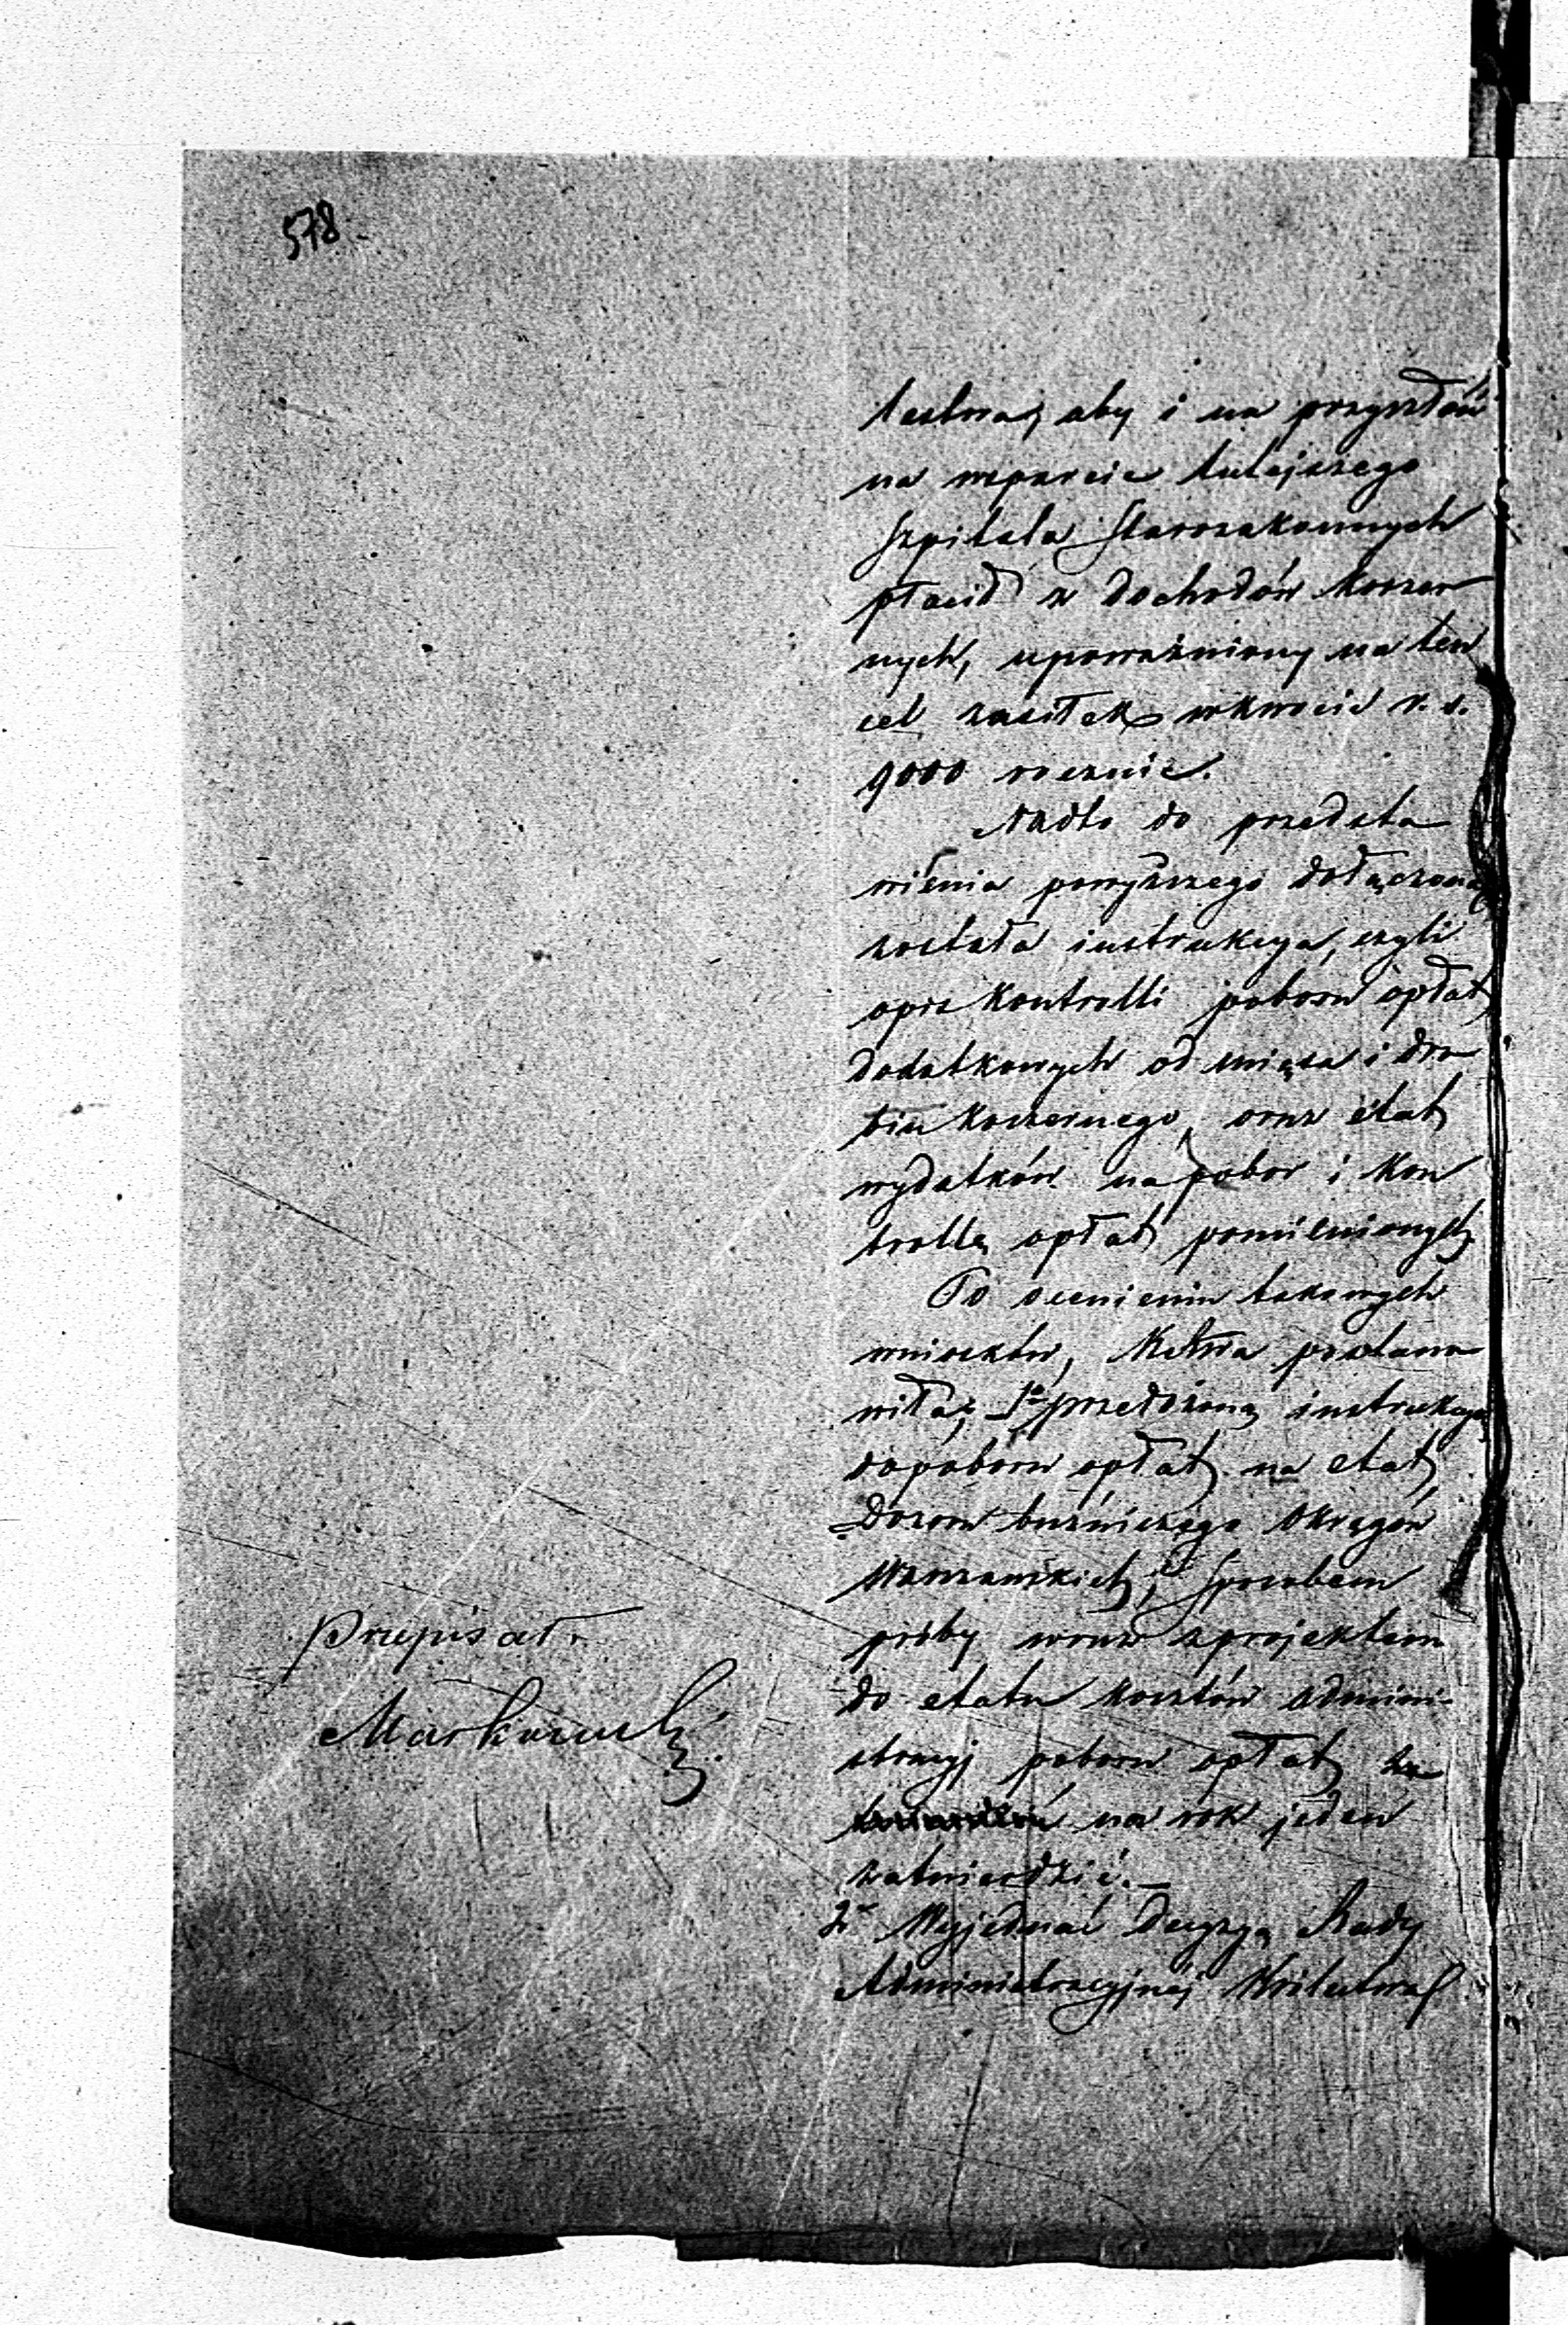 578.
tectwa, aby i na przyszłość
na wsparcie tutejszego
Szpitala Starozakonnych
płacić z dochodów koszer
nych, upoważniony na ten
cel zasiłek w kwocie r. s.
9000 rocznie.
Nadto do przedsta
wienia powyższego dołączona
została instrukcya, czyli
opis kontrolli poboru opłat
dodatkowych od mięsa i dro
biu koszernego, oraz etat
wydatków na pobor i kon
trollę opłat pomienionych
Po ocenieniu takowych
wniosków, postano
wiła: 1o przedłożoną instrukcyą
do poboru opłat na etat
Dozoru bużniczego Okręgów
Warszawskich, sposobem
próby wraz z projektem
do etatu kosztów admini-
stracyj poboru opłat
na rok jeden
zatwierdzić.
2o Wyjednać Decyzyą Rady
Administracyjnej Królestwa
Przepisał.